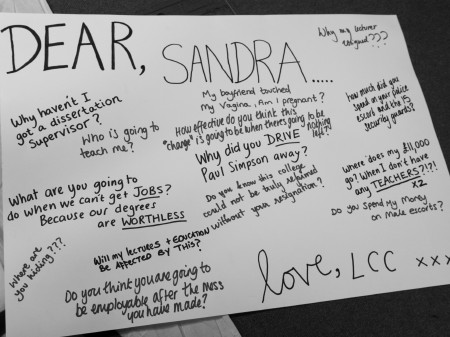 DEAR, SANDRA.....
Why my lecturer
resigned???
Why haven't I
got a dissertation
Supervisor?
Who is going to
teach me?
My boyfriend touched
my vagina. Am I pregnant?
How effective do you think this
"change" is going to be when theres going to be
nothing
left?
how much did you
spend on your police
escort and the 15
security guards?
Why did you DRIVE
Paul Simpson away?
What are you going to
do when we can't get JOBS?
Because our degrees
are WORTHLESS
Do you know this college
could not be truly reclaimed
without your resignation?
where does my £11,000
go? When I don't have
any TEACHERS?!?!
x2
Do you spend my money
on male escorts?
Where are
you hiding???
Will my lectures + EDUCATION
BE AFFECTED BY THIS?
Do you think you are going to
be employable after the mess
you have made?
love, LCC xxx